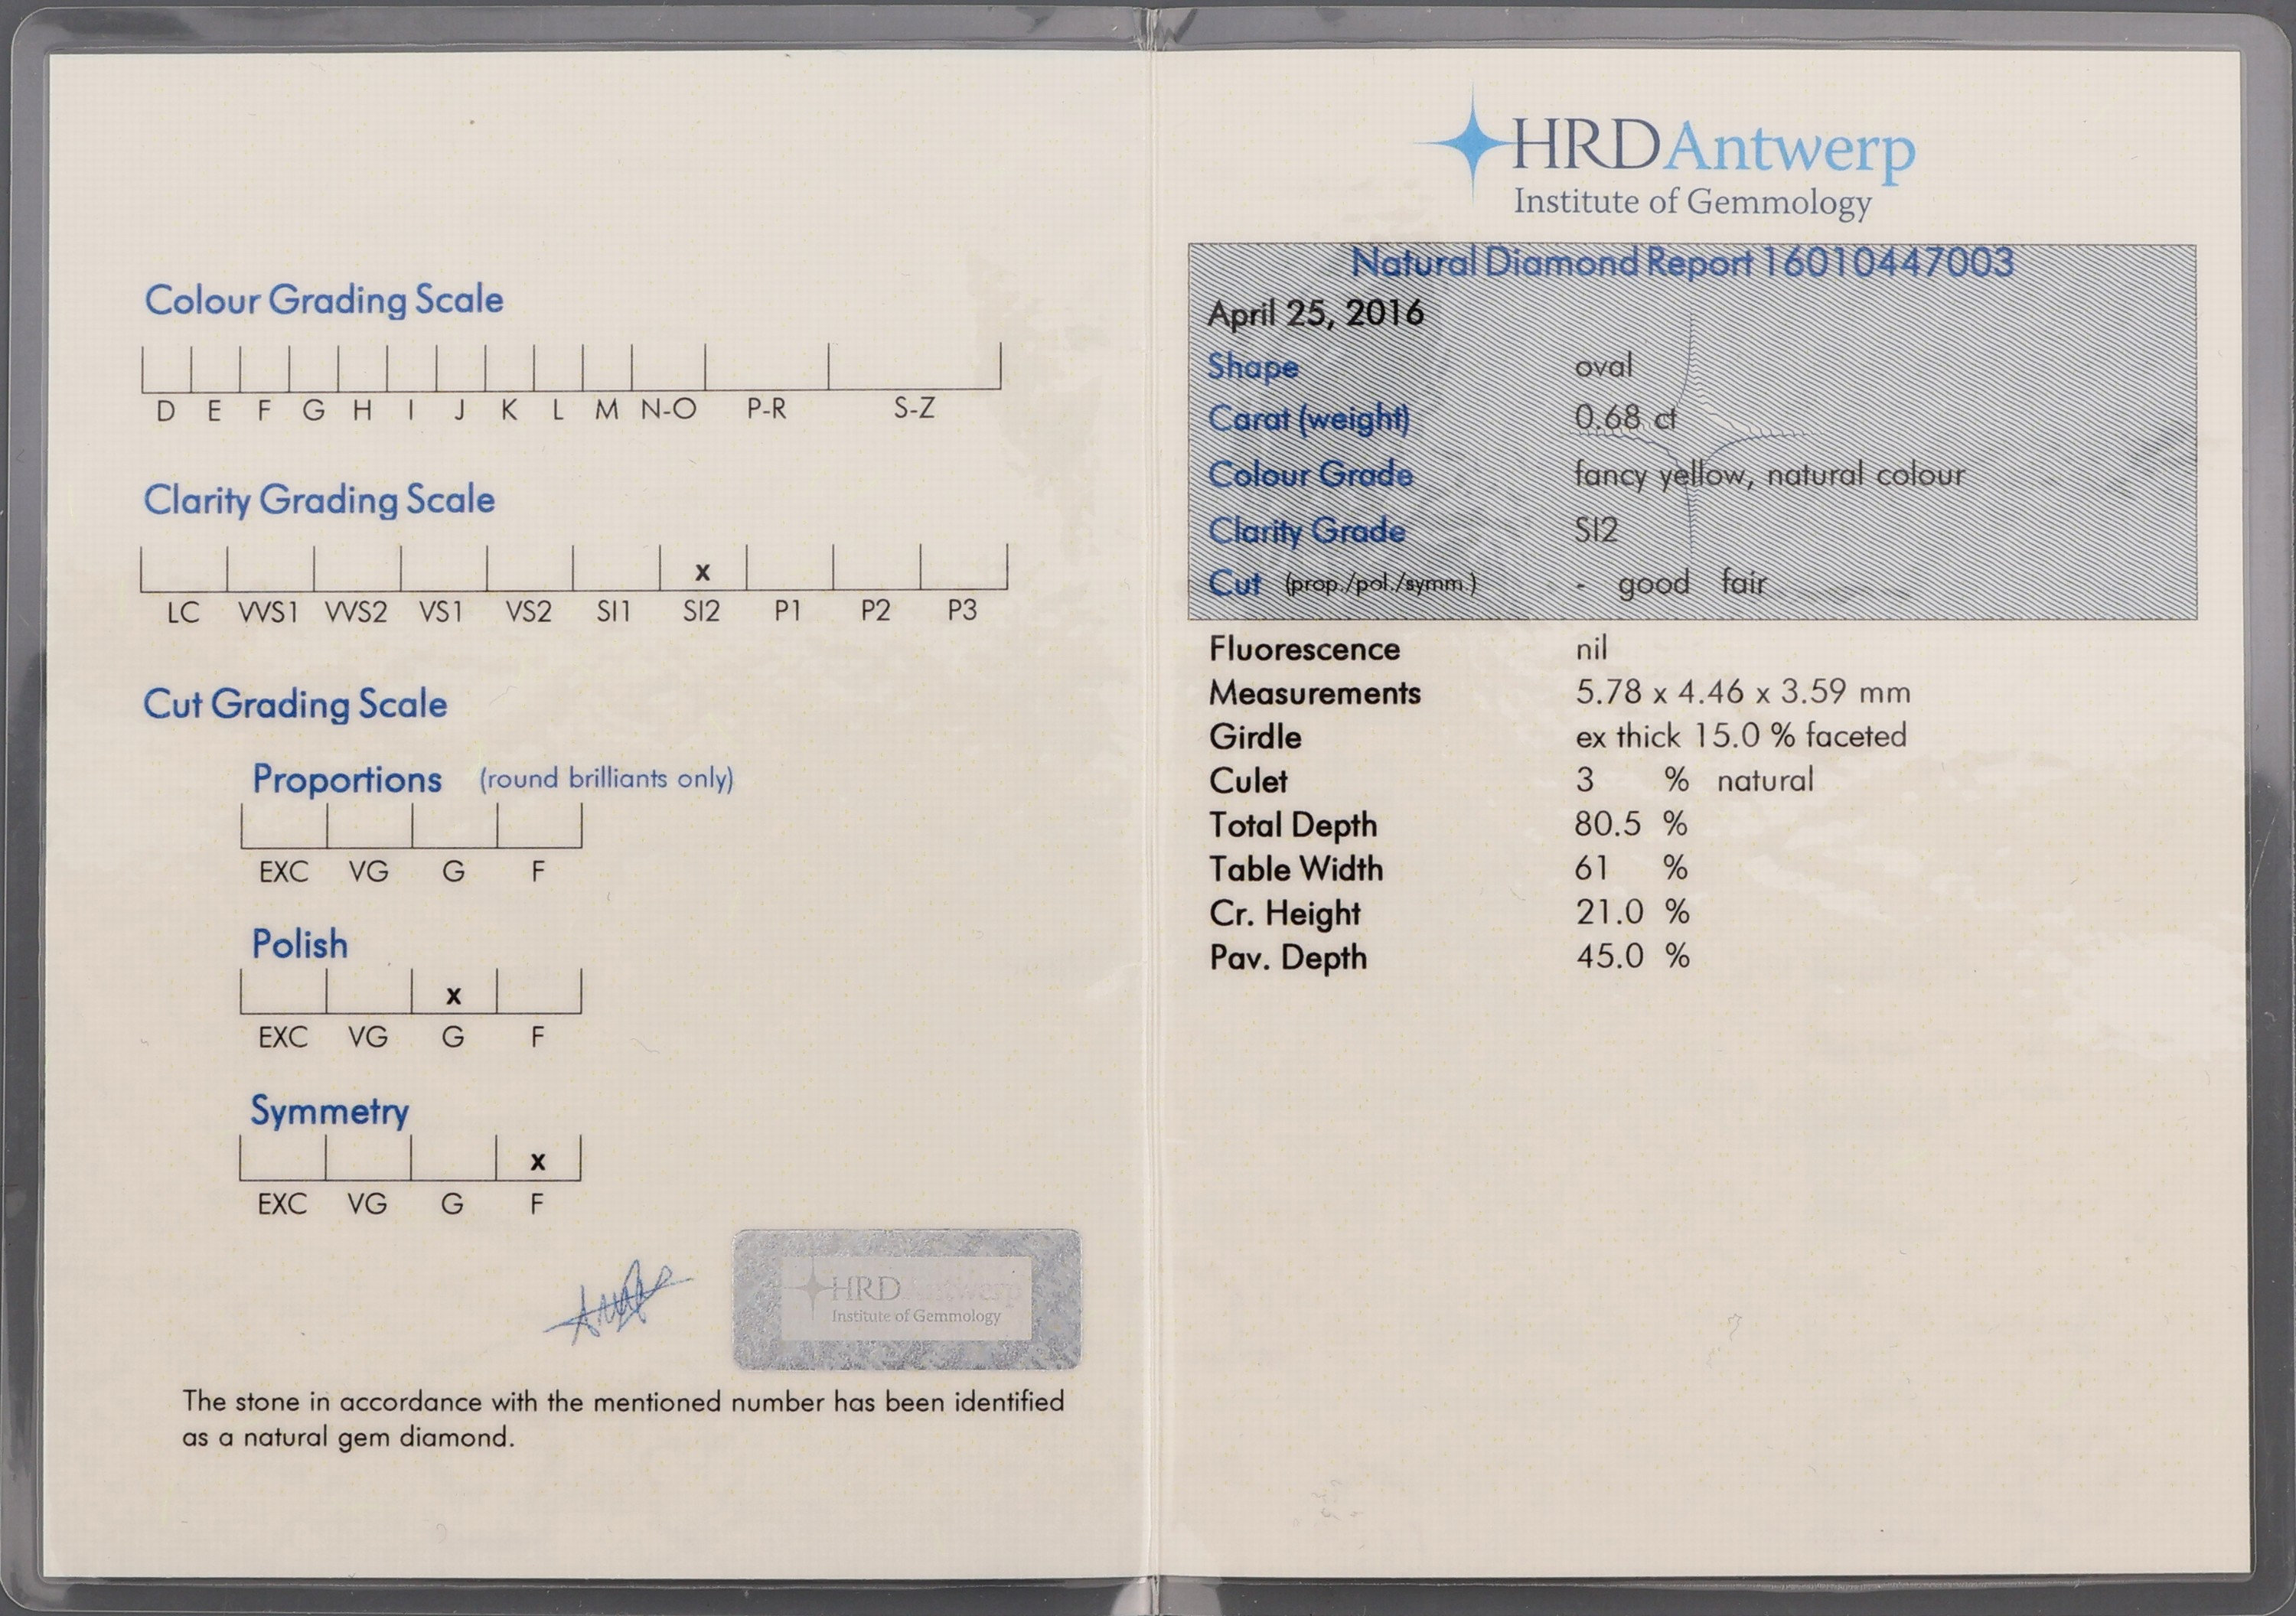 Colour Grading Scale
D E F G H I J K L M N-O P-R S-Z
Clarity Grading Scale
x
LC VVS1 VVS2 VS1 VS2 SI1 SI2 P1 P2 P3
Cut Grading Scale
Proportions (round brilliants only)
EXC VG G F
Polish
x
EXC VG G F
Symmetry
x
EXC VG G F
HRD Antwerp
Institute of Gemmology
The stone in accordance with the mentioned number has been identified
as a natural gem diamond.
HRD Antwerp
Institute of Gemmology
Natural Diamond Report 16010447003
April 25, 2016
Shape oval
Carat (weight) 0.68 ct
Colour Grade fancy yellow, natural colour
Clarity Grade SI2
Cut (prop./pol./symm.) - good fair
Fluorescence nil
Measurements 5.78 x 4.46 x 3.59 mm
Girdle ex thick 15.0 % faceted
Culet 3 % natural
Total Depth 80.5 %
Table Width 61 %
Cr. Height 21.0 %
Pav. Depth 45.0 %